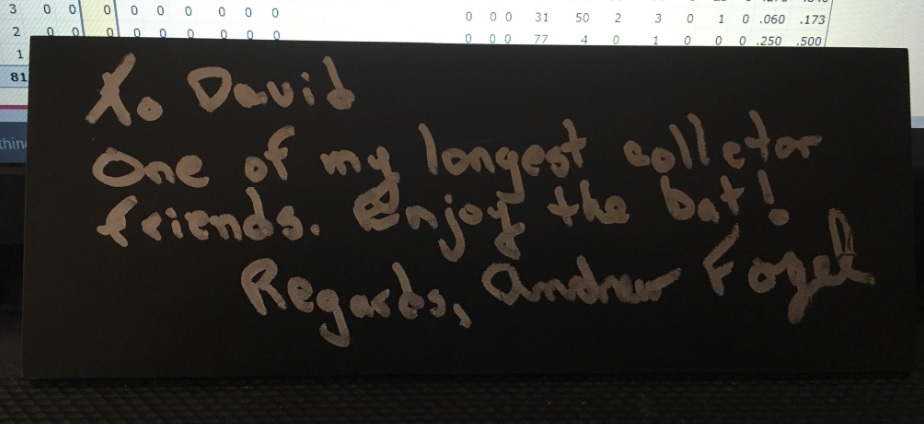 3 0 0 0 0 0 0 0 0 0
0 0 0 31 50 2 3 0 1 0 .060 .173
2 0 0 0 0 0 0 0 0 0
0 0 0 77 4 0 1 0 0 0 .250 .500
1
81
To David
One of my longest collector
friends. Enjoy the bat!
Regards, Andrew Fogel